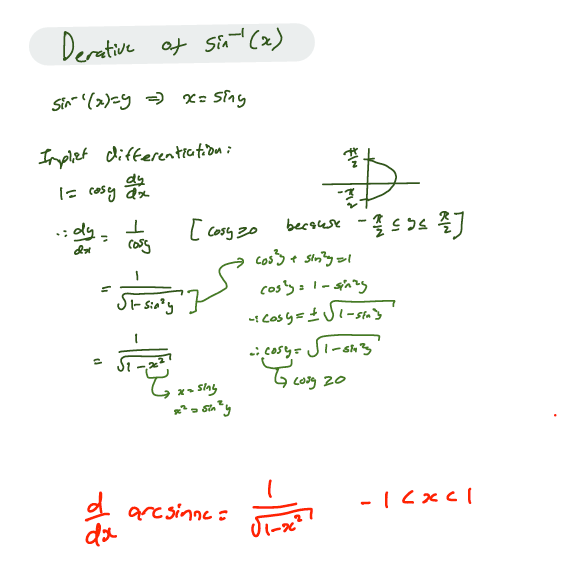 Derative of sin⁻¹(x)
sin⁻¹(x)=y ⇒ x = siny
Implict differentiation:
1 = cosy dy/dx
π/2
-π/2
∴ dy/dx = 1/cosy [ cosy ≥ 0 because -π/2 ≤ y ≤ π/2 ]
= 1/√(1-sin²y) ] → cos²y + sin²y = 1
cos²y = 1 - sin²y
∴ cosy = ± √(1-sin²y)
∴ cosy = √(1-sin²y)
↳ cosy ≥ 0
= 1/√(1-x²)
↳ x = siny
x² = sin²y
d/dx arcsinx = 1/√(1-x²) -1 < x < 1